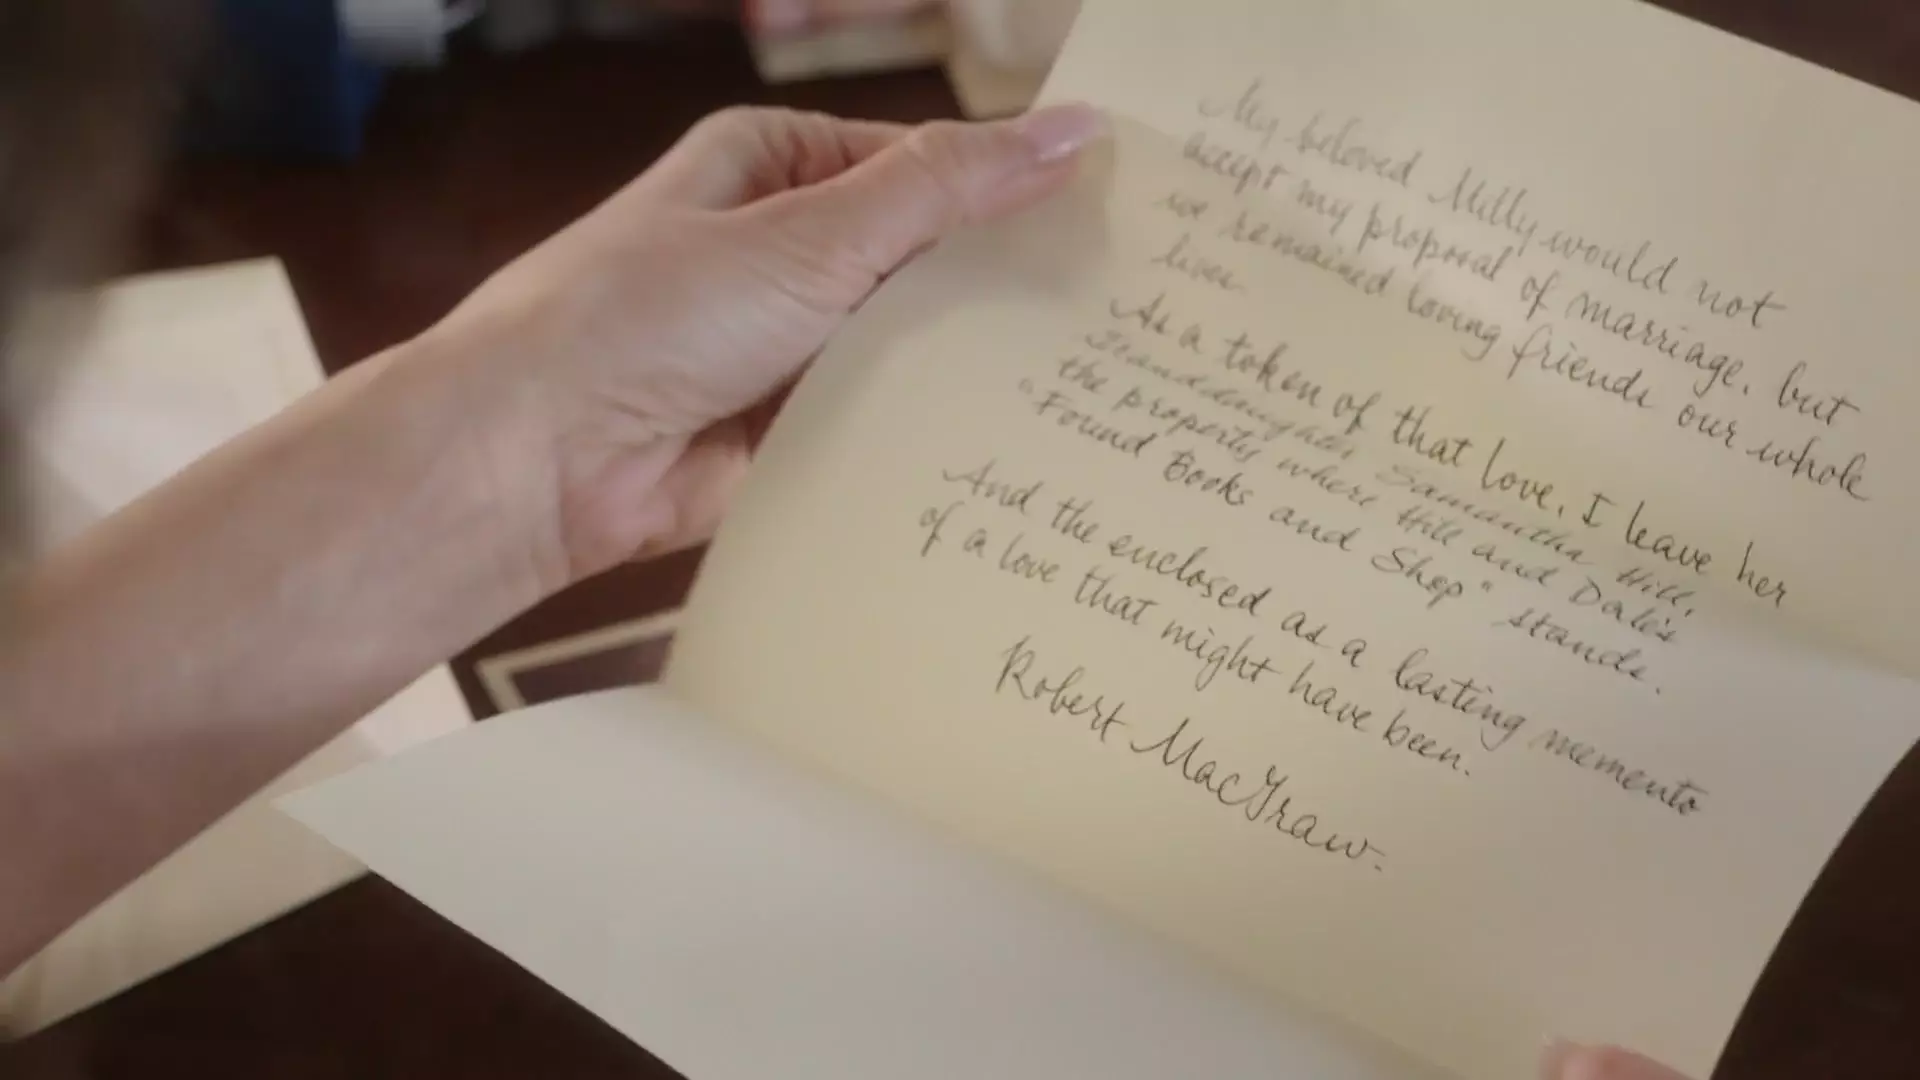 My beloved Milly would not
accept my proposal of marriage, but
we remained loving friends our whole
lives.
As a token of that love, I leave her
Granddaughter, Samantha Hill,
the property where Hill and Dale's
"Found Books and Shop" stands.
And the enclosed as a lasting memento
of a love that might have been.
Robert MacGraw.